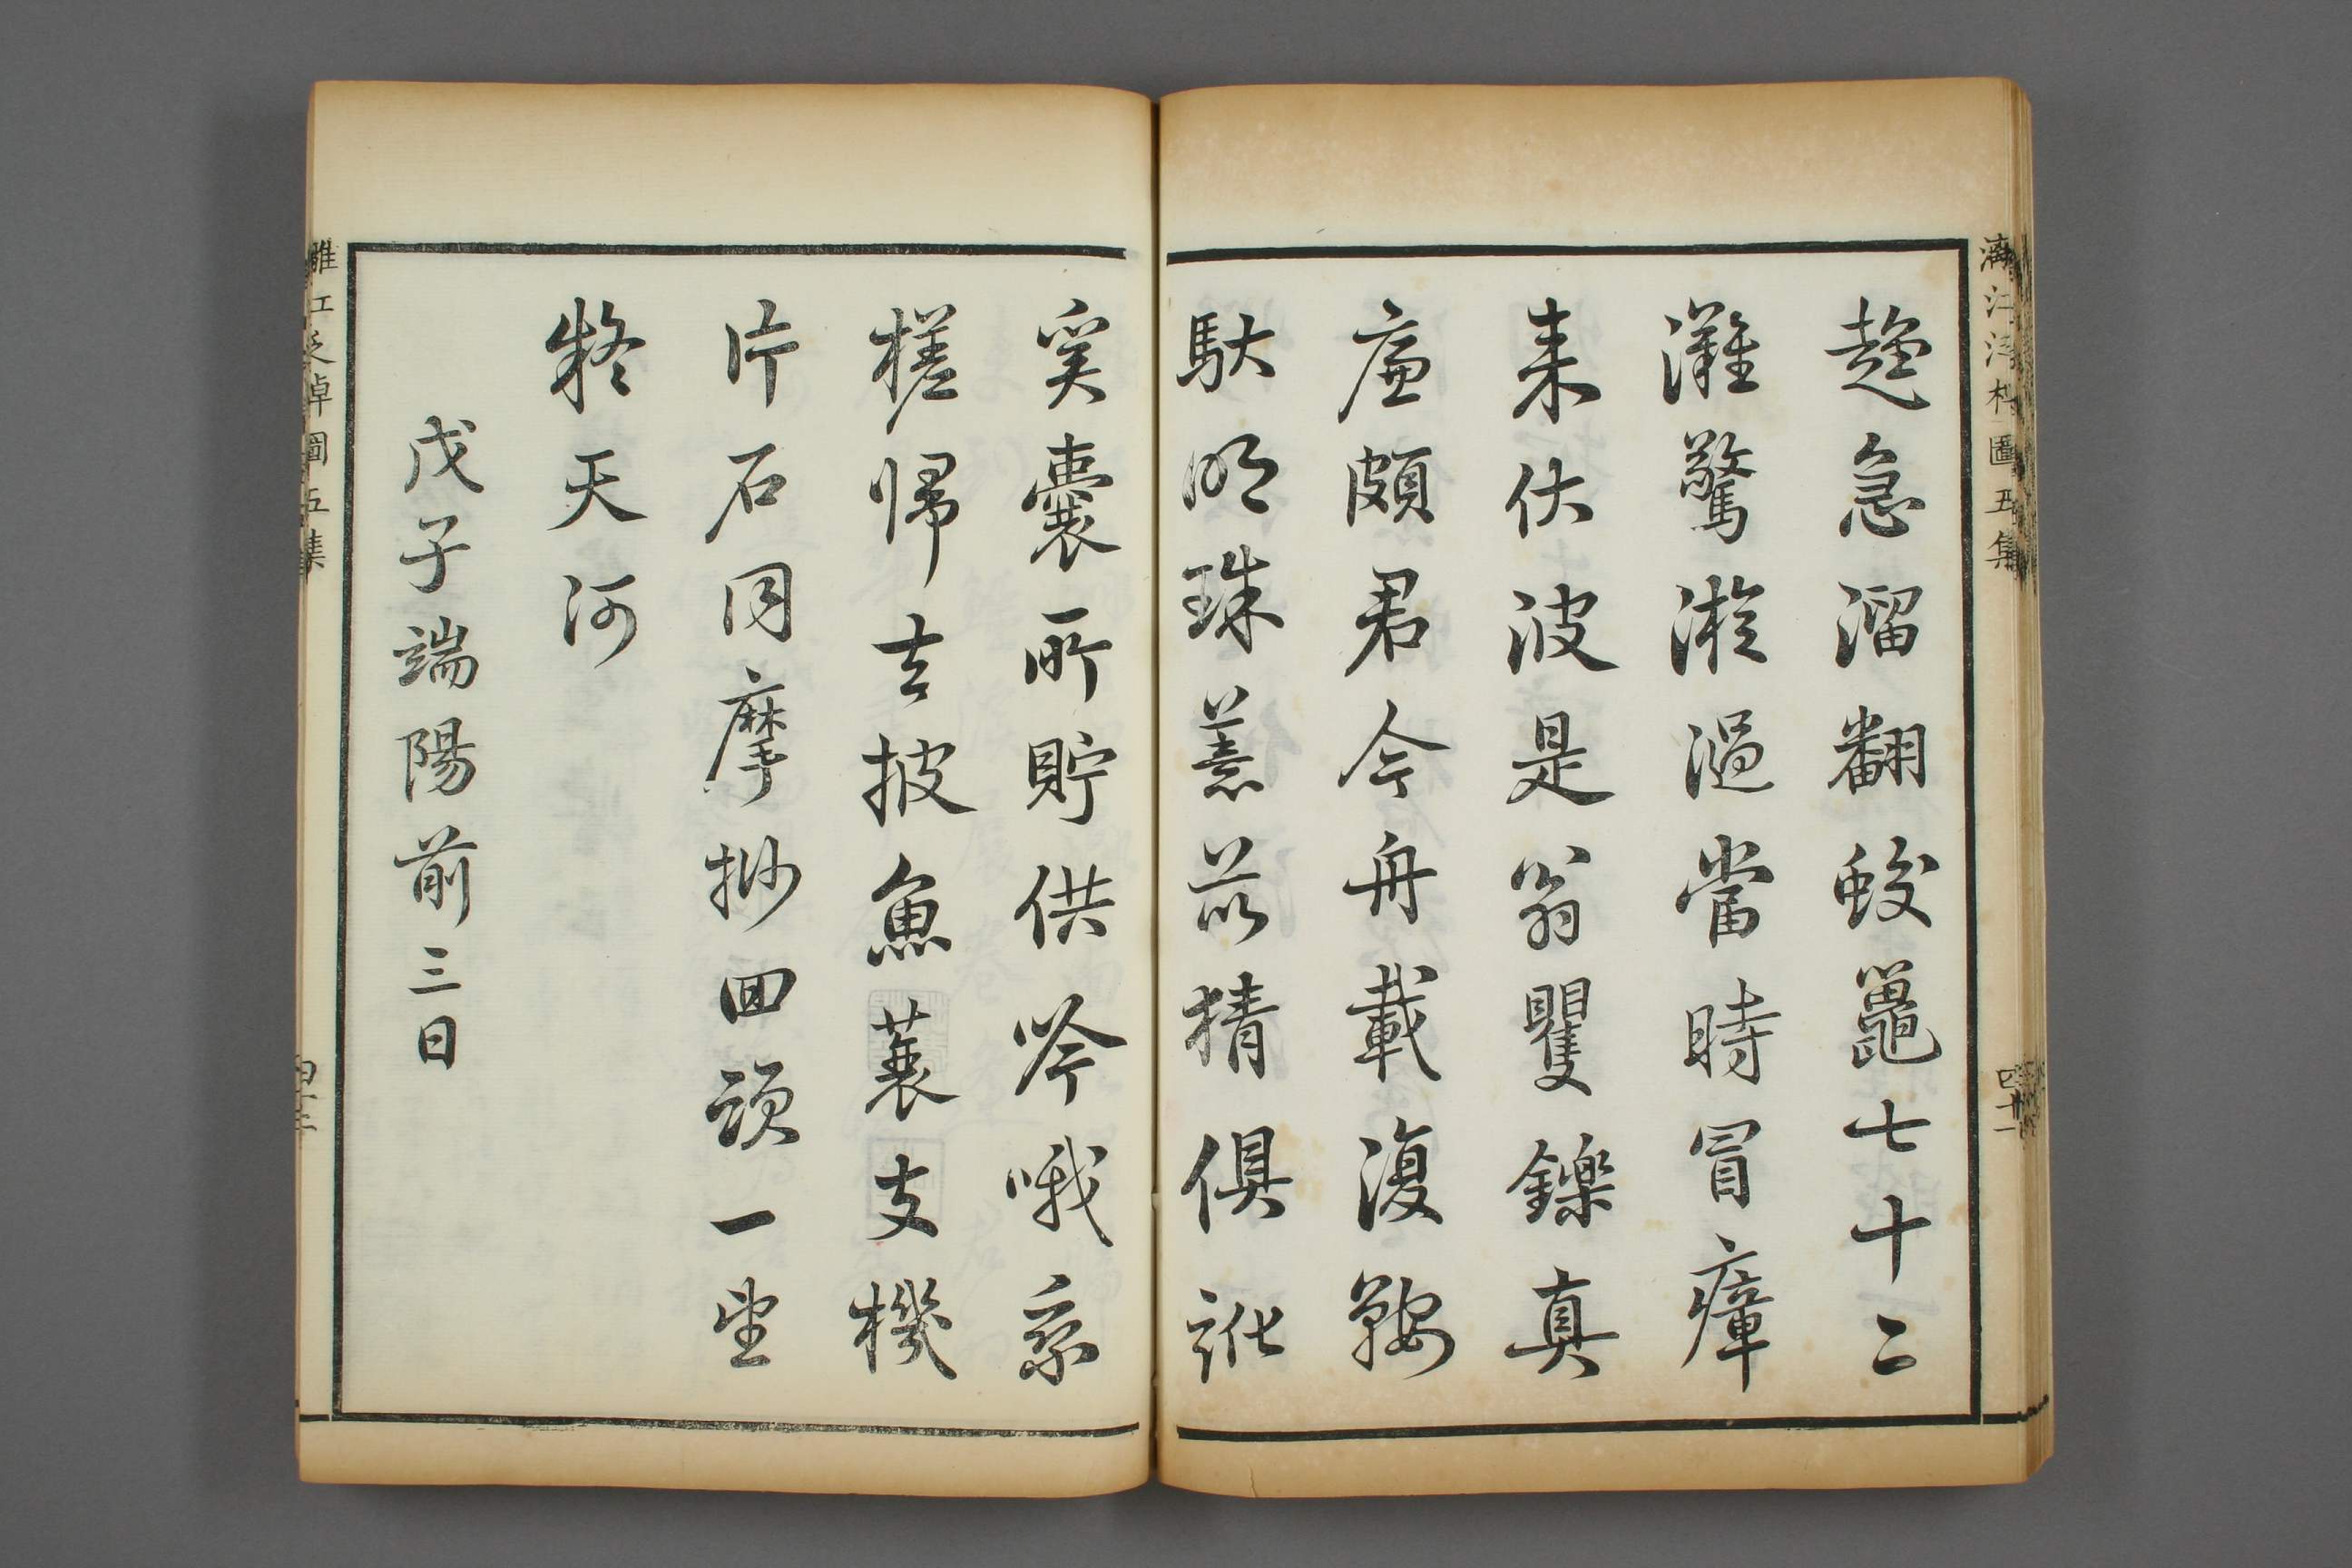 灕江泛棹圖五集
四十一
趨急溜翻蛟鼉七十二
灘驚漩濄當時冒瘴
来伏波是翁矍鑠真
廉頗君今舟載復鞍
馱明珠薏苡猜俱訛
奚囊所貯供吟哦乘
槎歸去披魚蓑支機
片石同摩挱回頭一望
疑天河
戊子端陽前三日
灕江泛棹圖五集
四十二